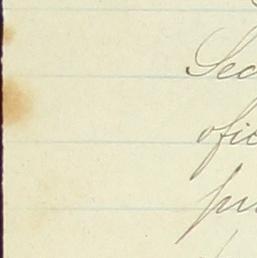 Sec
ofic
pu